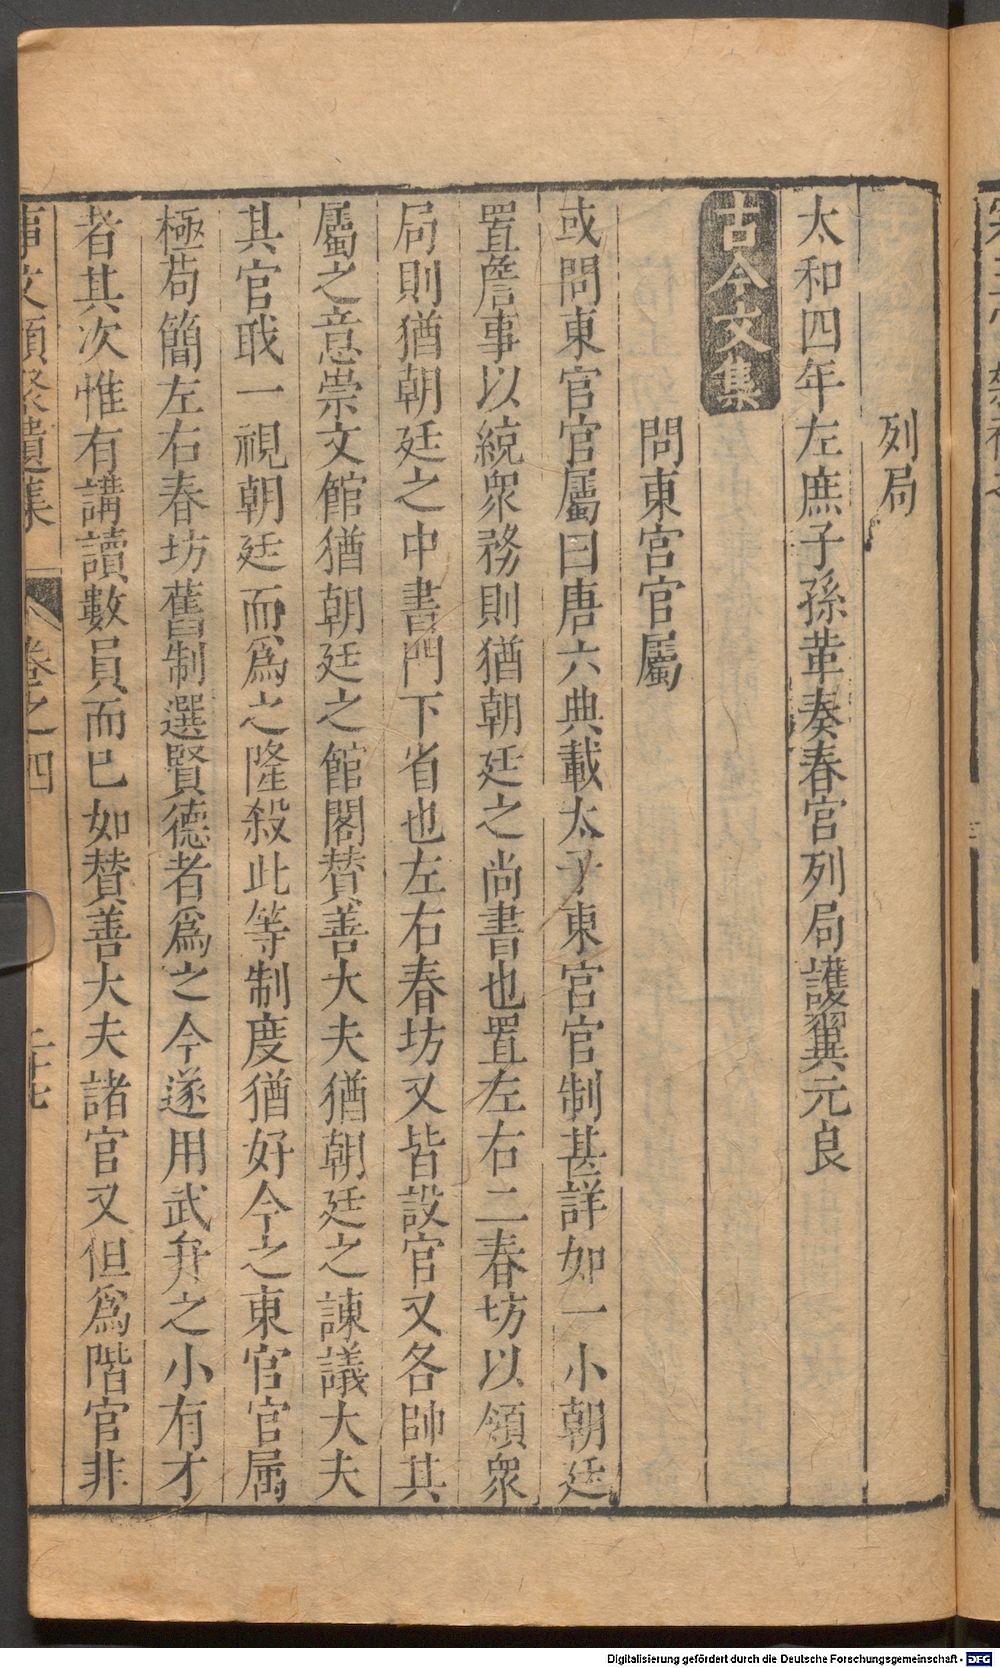 列局
太和四年左庶子孫革奏春官列局護翼元良
古今文集
問東宮官屬
或問東官官屬曰唐六典載太子東宮官制甚詳如一小朝廷
置詹事以統衆務則猶朝廷之尚書也置左右二春坊以領衆
局則猶朝廷之中書門下省也左右春坊又皆設官又各帥其
屬之意崇文館猶朝廷之館閣賛善大夫猶朝廷之諫議大夫
其官戢一視朝廷而爲之隆殺此等制度猶好今之東官官属
極苟簡左右春坊舊制選賢德者爲之今遂用武弁之小有才
者其次惟有講讀數員而巳如賛善大夫諸官又但爲階官非
事文類聚遺集 卷之四 二十七
Digitalisierung gefördert durch die Deutsche Forschungsgemeinschaft - DFG